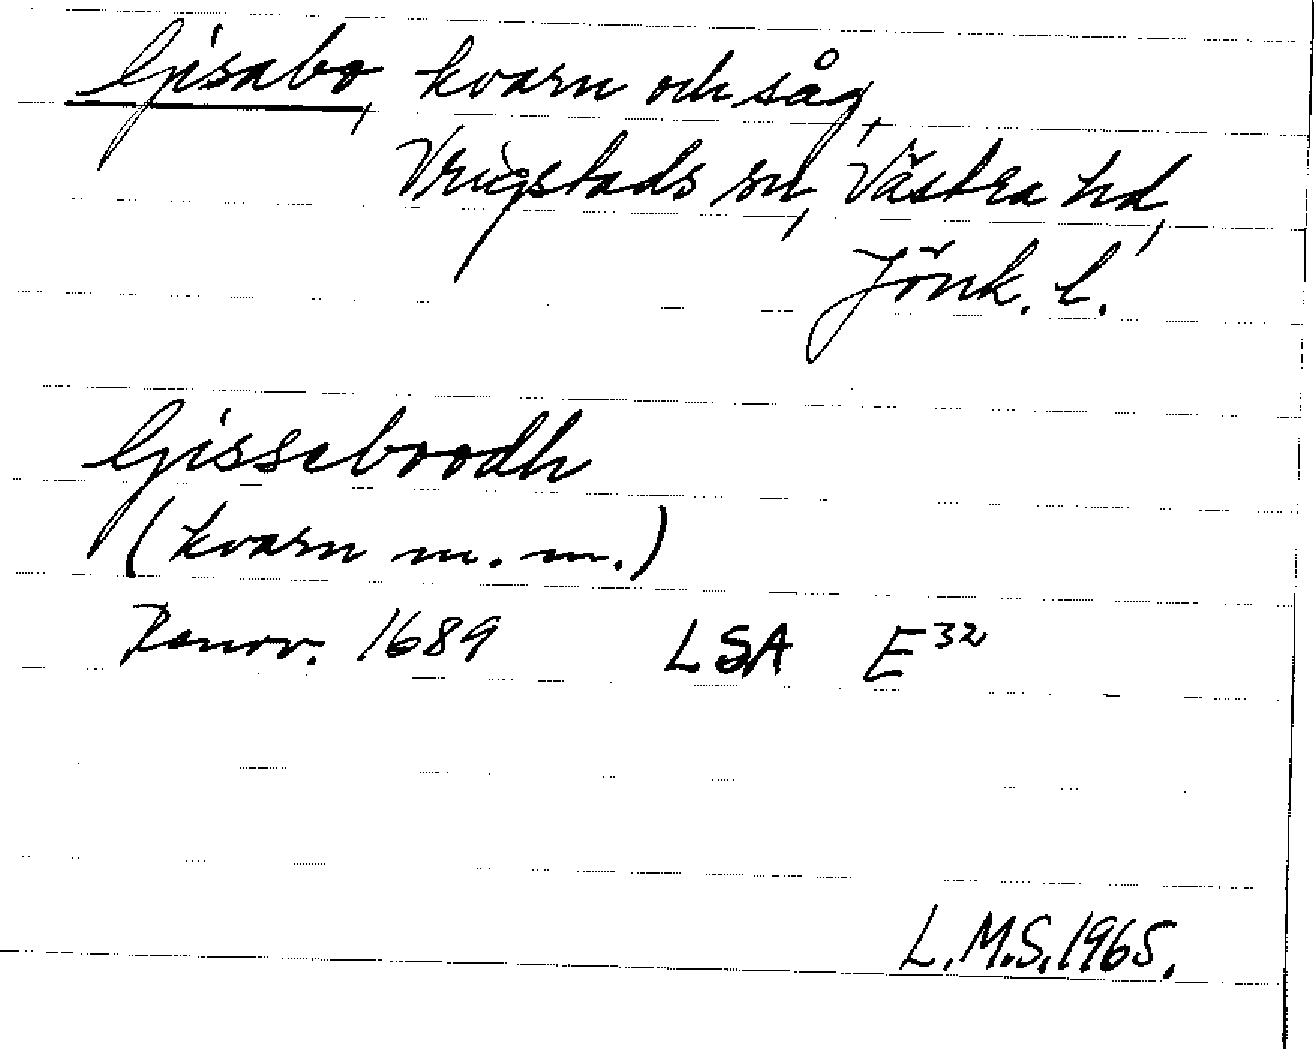 Gisabo, kvarn och såg,
Vrigstads sn, Västra hd,
Jönk. l.
Gisseboodh
(kvarn m. m.)
Renov. 1689 LSA E³²
L.M.S. 1965.